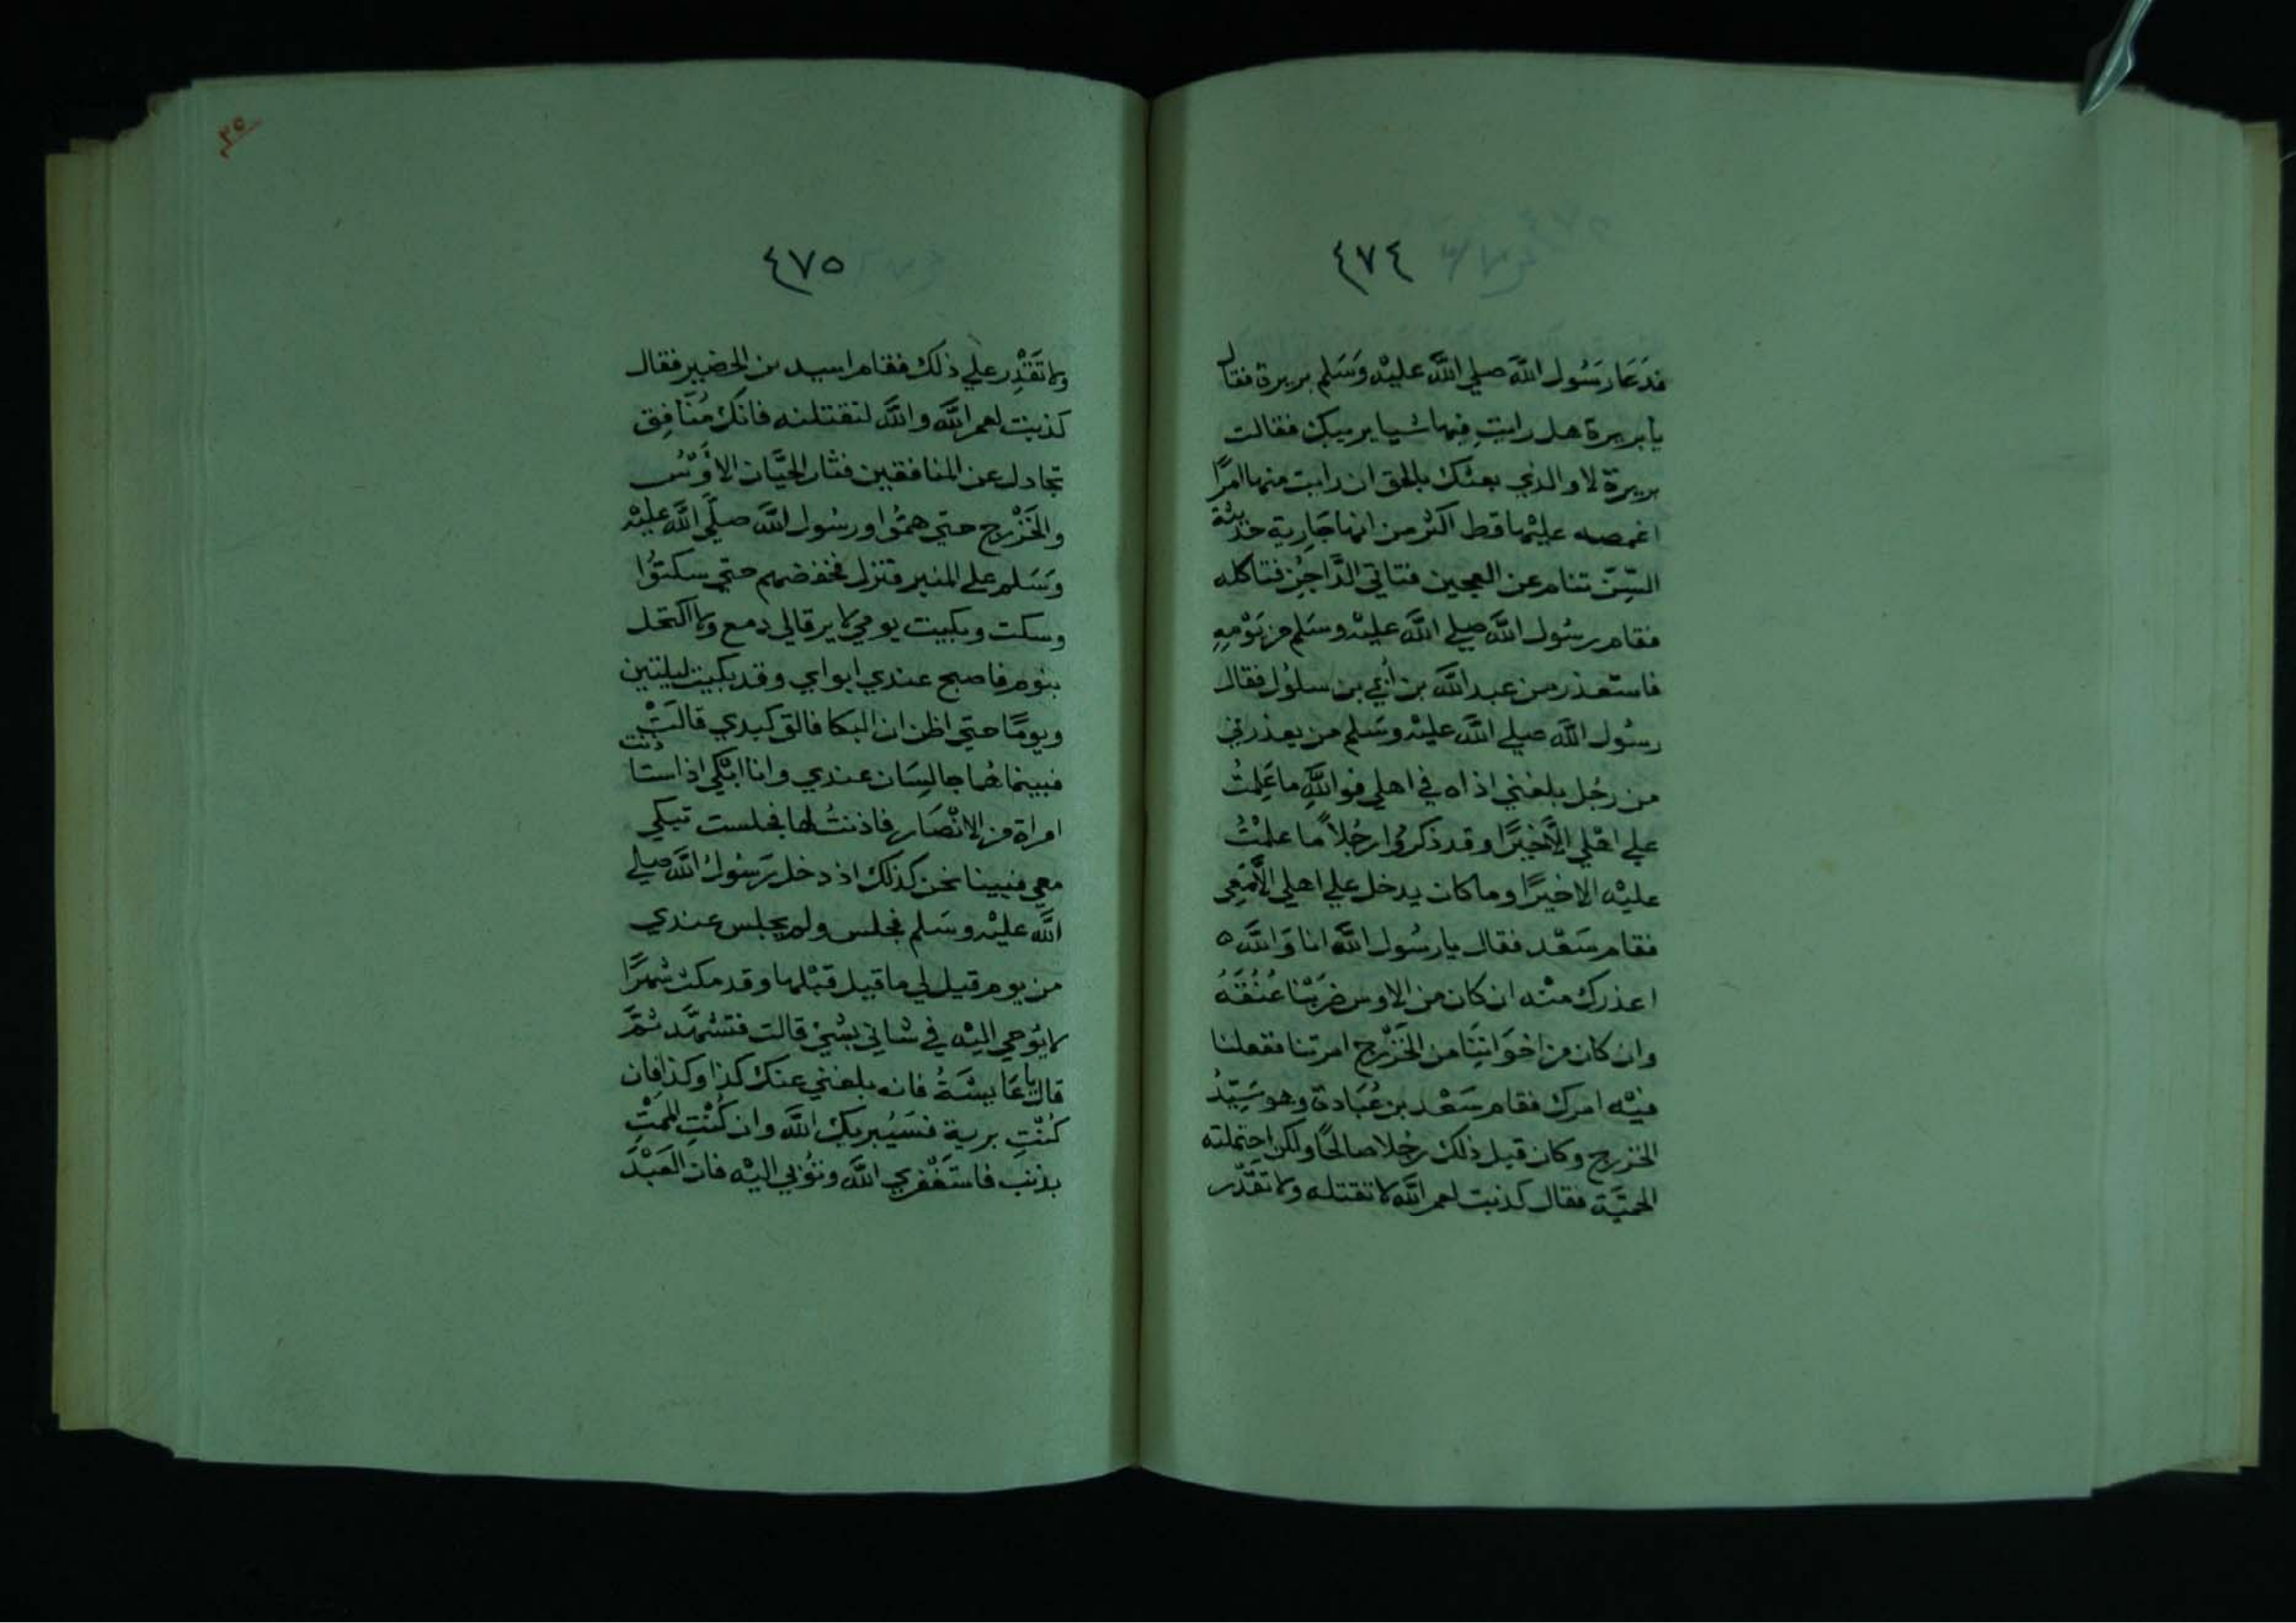 ٤٧٤
فدَعَا رَسُول اللَّه صلي اللَّه عليْه وَسَلم بريرة فقال
يا بريرة هل رايتِ فيها شيا يريبكِ فقالت
بريرة لا والذي بعثك بالحق ان رايت منها امرًا
اغمصه عليْها قط اكثر من انها جَارية حَديثة
السِّنّ تنام عن العجين فتاتي الدَّاجِن فتاكله
فقام رسُول اللَّه صلي اللَّه عليْه وسَلم من يَوْمِهِ
فاستعذر من عبد اللَّه بن أُبي بن سلوُل فقال
رسُول اللَّه صلي اللَّه عليْه وسَلم من يعذرني
من رجُل بلغني اذاه في اهلي فو اللَّهِ ما عَلِمْتُ
علي اهْلي الَّا خيْرًا وقد ذكروُا رجُلاً ما علمْتُ
عليْه الا خيرًا وما كان يدخل علي اهلي الَّا مَعِي
فقام سَعْد فقال يا رسُول اللَّه انا وَاللَّه ٥
اعذرك منْه ان كان من الاوس ضرَبْنا عُنُقَهُ
وان كان من اخوَاننَا من الخَزْرج امرتنا ففعلنا
فيْه امرك فقام سَعْد بن عُبَادة وهو سَيّدُ
الخزرج وكان قبل ذلك رجُلا صالحًا ولكن احتملته
الحميَّة فقال كذبت لعمر اللَّه لا تقتله ولا تقْدّر
٤٧٥
ولا تَقْدِر علي ذلك فقام اسيد بن الحضير فقال
كذبت لعمر اللَّه واللَّه لنقتلنه فانك مُنَافِق
تجادل عن المنافقين فثار الحيَّان الاوْسُ
والخَزْرج حتي همّوُا ورسُول اللَّه صلَّي اللَّه عليْه
وَسَلم علي المنبر فنزل فخفضهم حتي سكتوُا
وسكت وبكيت يومي لا يرقا لي دمع ولا اكتحل
بنوم فاصبح عندي ابواي وقد بكيت ليلتين
ويومًا حتي اظن ان البكا فالق كبدي قالَتْ
فبينما هُما جالسَان عندي وانا ابْكي اذ استاذنت
امراة من الانْصَار فاذنتُ لها فجلست تبكي
معي فبينا نحن كذلك اذ دخل رَسُول اللَّه صلي
اللَّه عليْه وسَلم فجلس ولم يجلس عندي
من يوم قيل لي ما قيل قبْلها وقد مكث شهرًا
لا يوُحي اليْه في شاني بشيْ قالت فتشهَّد ثمَّ
قال يا عَايشَةُ فانه بلغني عنك كذا وكذا فان
كُنْتِ برية فسَيُبريك اللَّه وان كُنْتِ الممْتِ
بذنب فاستَغْفري اللَّه وتوُبي اليْه فان العَبْدَ